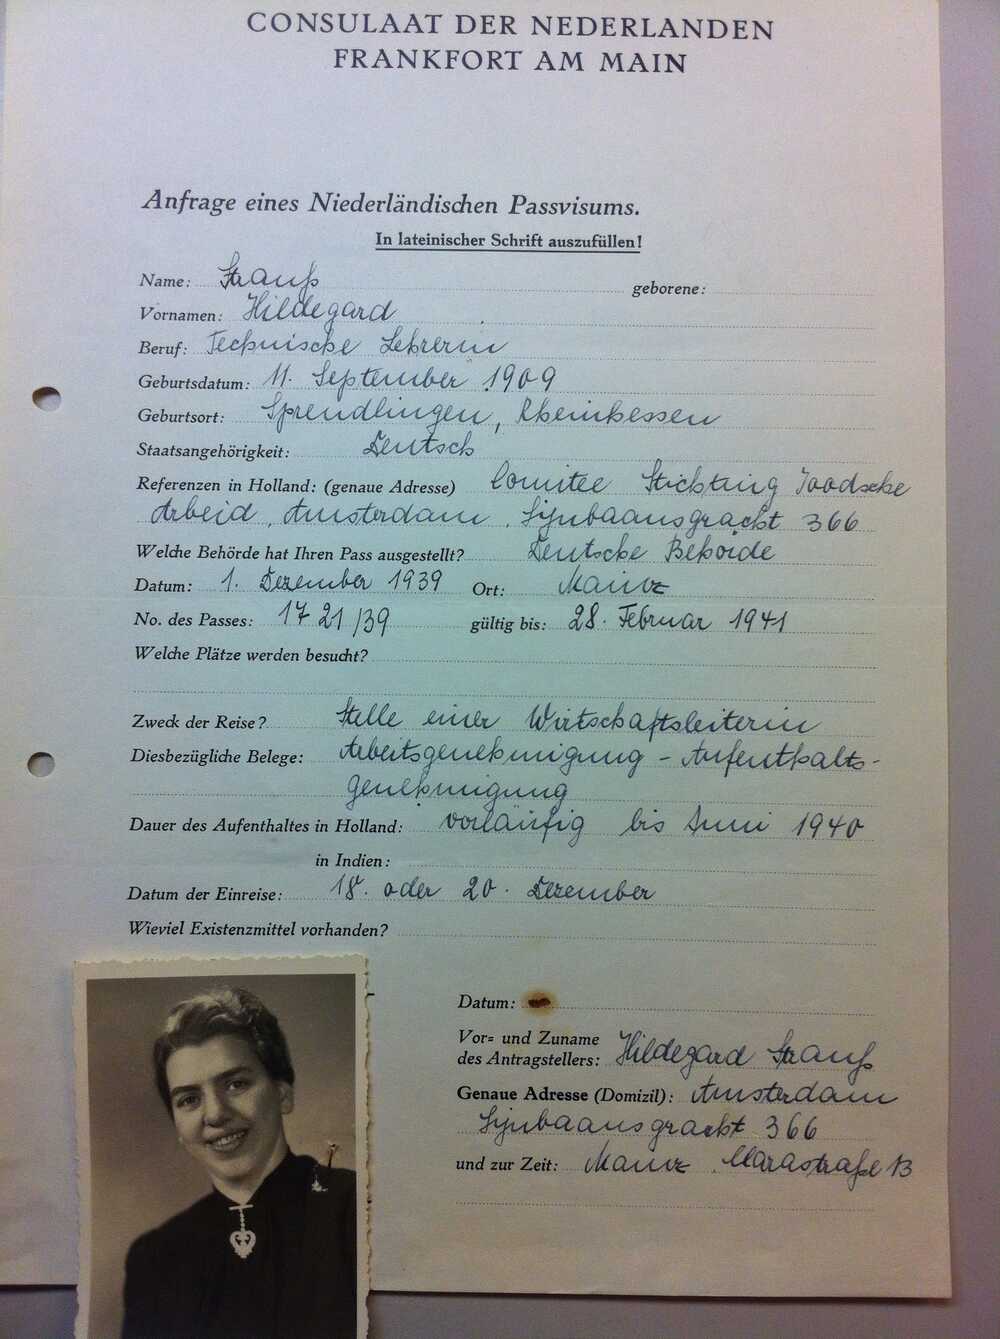 CONSULAAT DER NEDERLANDEN
FRANKFORT AM MAIN
Anfrage eines Niederländischen Passvisums.
In lateinischer Schrift auszufüllen!
Name: Strauß geborene:
Vornamen: Hildegard
Beruf: Technische Lehrerin
Geburtsdatum: 11. September 1909
Geburtsort: Sprendlingen, Rheinhessen
Staatsangehörigkeit: Deutsch
Referenzen in Holland: (genaue Adresse) Comitee Stichting Joodsche
Arbeid, Amsterdam, Lijnbaansgracht 366
Welche Behörde hat Ihren Pass ausgestellt? Deutsche Behörde
Datum: 1. Dezember 1939 Ort: Mainz
No. des Passes: 1721/39 gültig bis: 28. Februar 1941
Welche Plätze werden besucht?
Zweck der Reise? Stelle einer Wirtschaftsleiterin
Diesbezügliche Belege: Arbeitsgenehmigung - Aufenthalts-
genehmigung
Dauer des Aufenthaltes in Holland: vorläufig bis Juni 1940
in Indien:
Datum der Einreise: 18. oder 20. Dezember
Wieviel Existenzmittel vorhanden?
Datum:
Vor= und Zuname
des Antragstellers: Hildegard Strauß
Genaue Adresse (Domizil): Amsterdam
Lijnbaansgracht 366
und zur Zeit: Mainz, Clarastraße 13